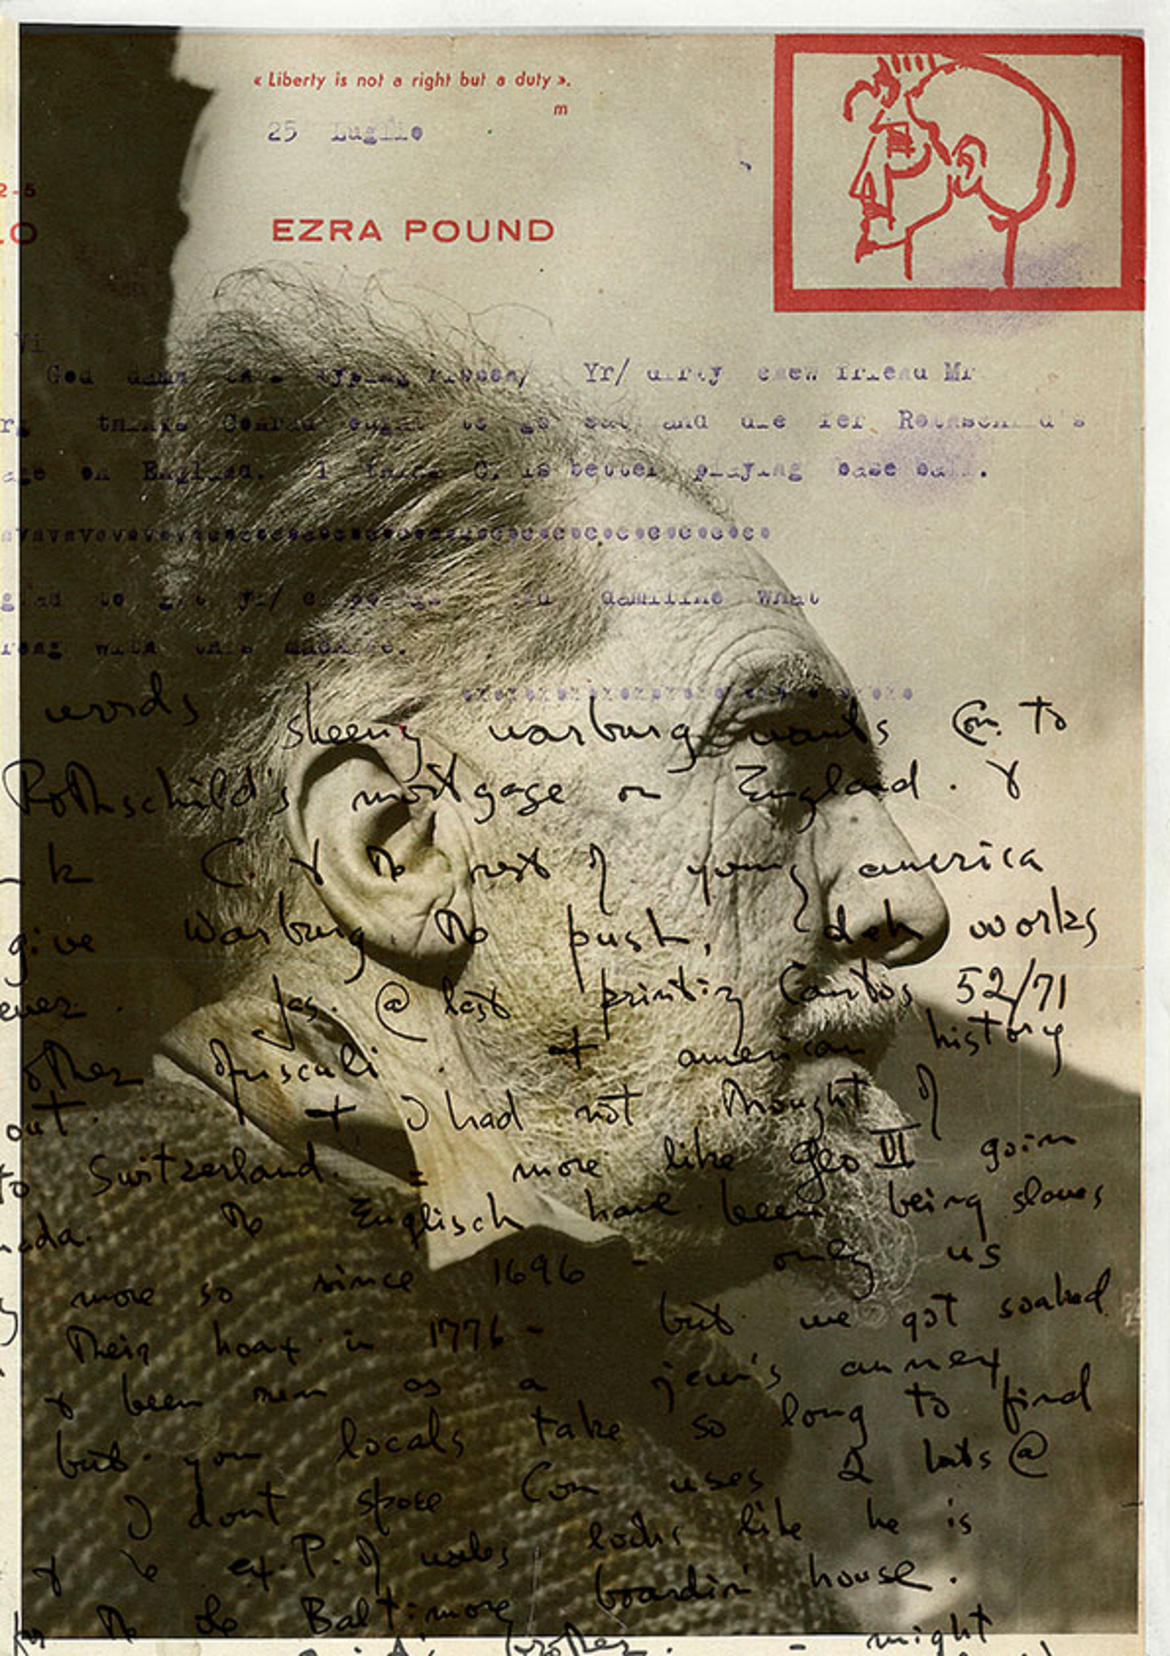 « Liberty is not a right but a duty ».
m
25 Luglio
2-5
LO
EZRA POUND
God damn this typing ribbon/ Yr/ dirty chew friend Mr
thinks Conrad ought to go out and die fer Rothschild's
on England. I think C. is better playing base ball.
to get yr/ and damiline what
with this machine.
words sheeny warburg wants Con to
Rothschild's mortgage on England. &
k C. & the rest of young america
give Warburg the push,
works
Jas. @ last printing Cantos 52/71
other Opusculi. + american history
out. + I had not thought of
to Switzerland. = more like Geo VI goin
the Englisch have been being slaves
more so since 1696 - only us
their hoax in 1776 - but we got soaked
& been run as a jew's annex
but you locals take so long to find
I dont spose Con uses 2 bats @
& the ex. P. of wales looks like he is
for the Baltimore boardin' house.
brother. - might